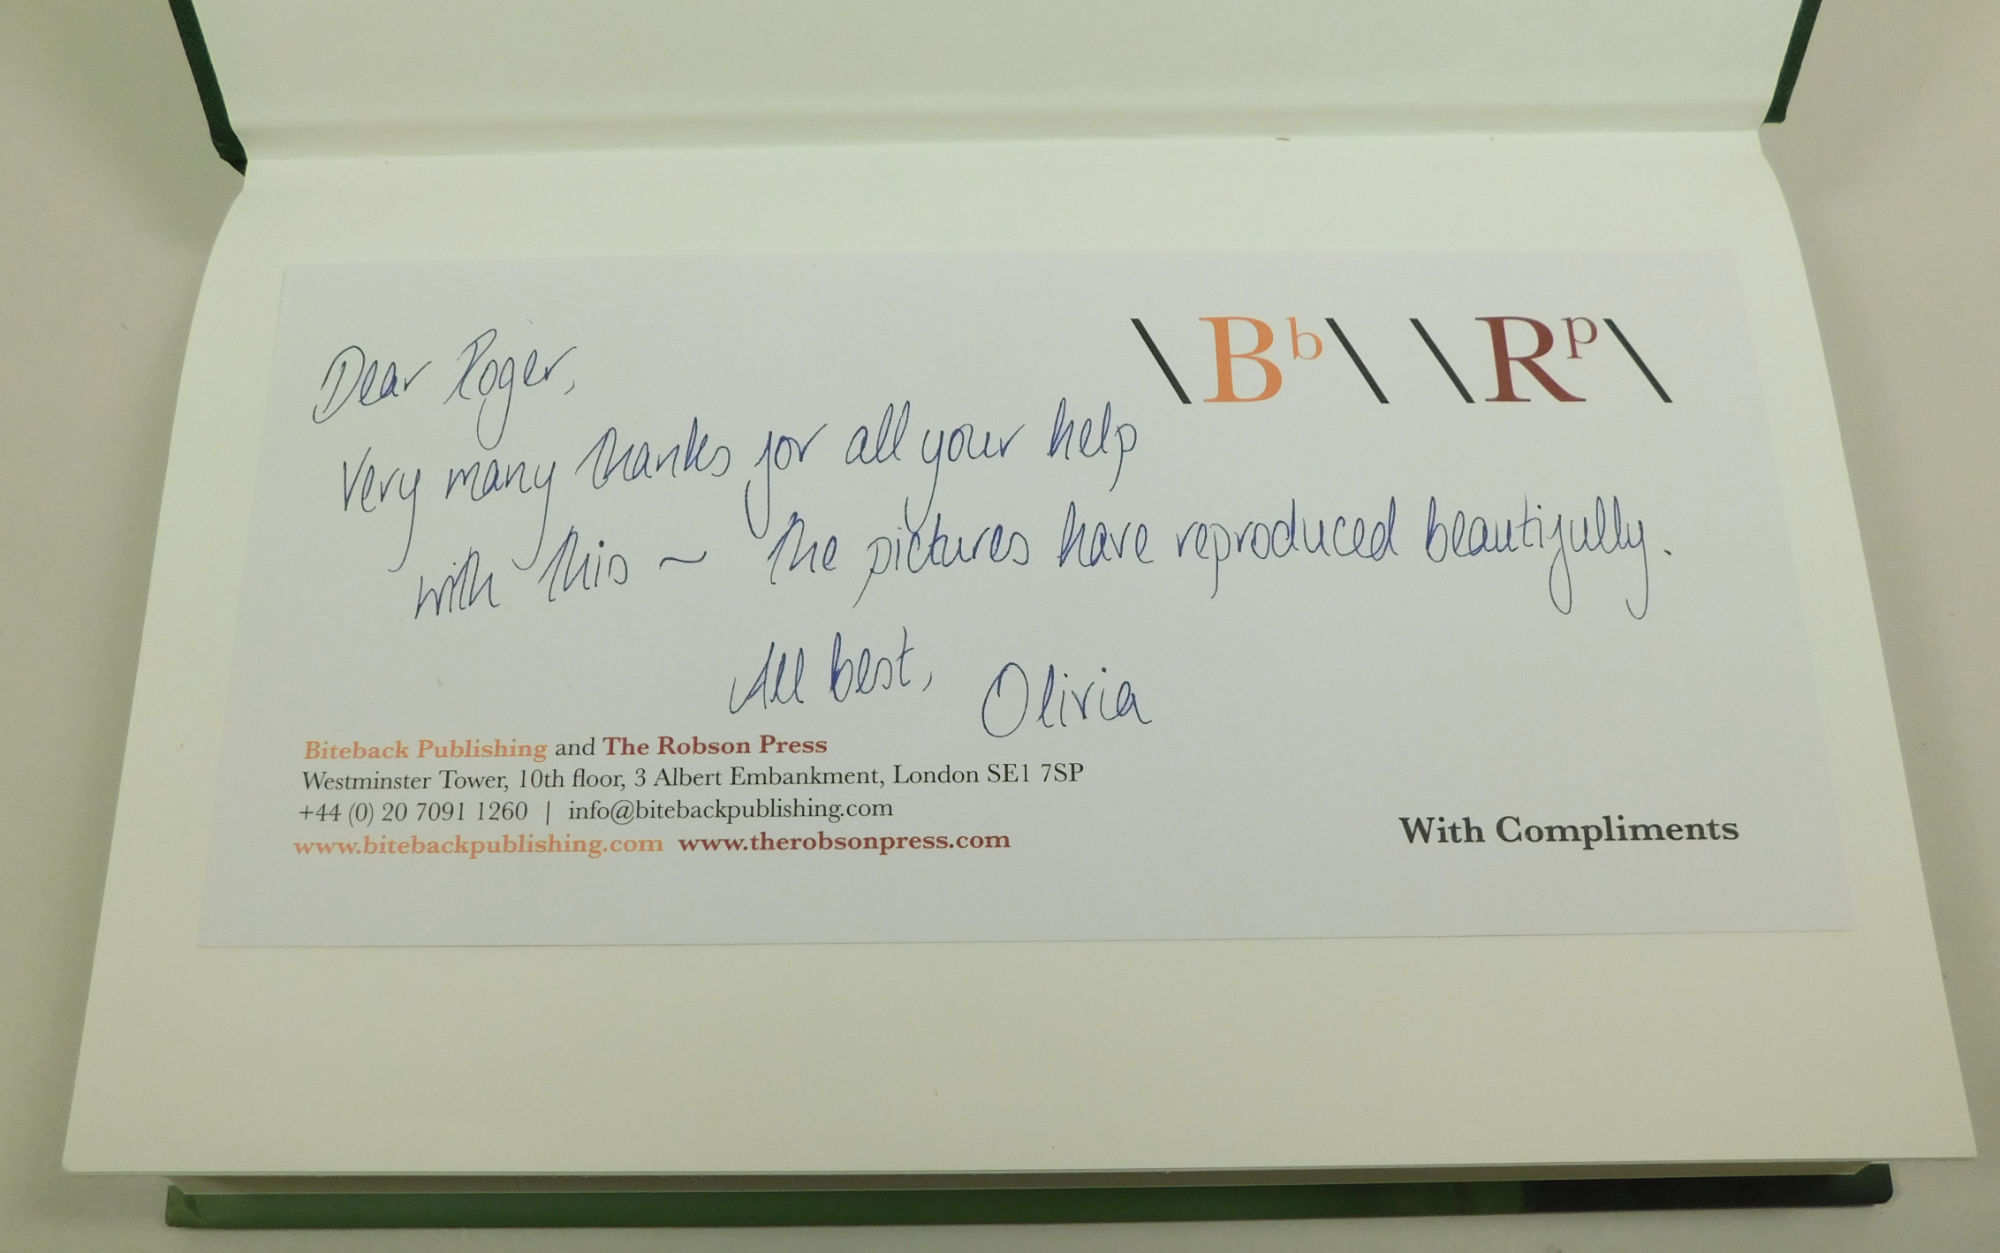 \Bb\ \Rp\
Dear Roger,
Very many thanks for all your help
with this ~ the pictures have reproduced beautifully.
All best, Olivia
Biteback Publishing and The Robson Press
Westminster Tower, 10th floor, 3 Albert Embankment, London SE1 7SP
+44 (0) 20 7091 1260 | info@bitebackpublishing.com
www.bitebackpublishing.com www.therobsonpress.com
With Compliments